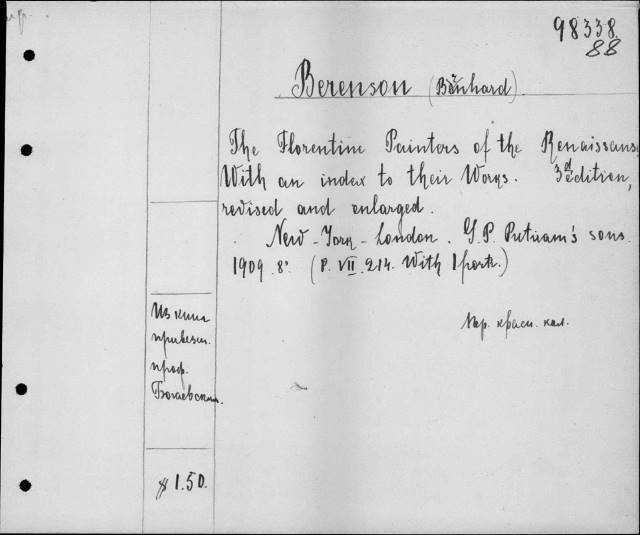 98338
88
Berenson (Bernhard)
The Florentine Painters of the Renaissans
With an index to their Works. 3d edition,
revised and enlarged.
New-York-London. G.P. Putnam's sons
1909. 8°. (P. VII. 214. With 1 portr.)
Из книг
привезен.
проф.
Богаевским.
Пер. красн. кол.
$1.50.